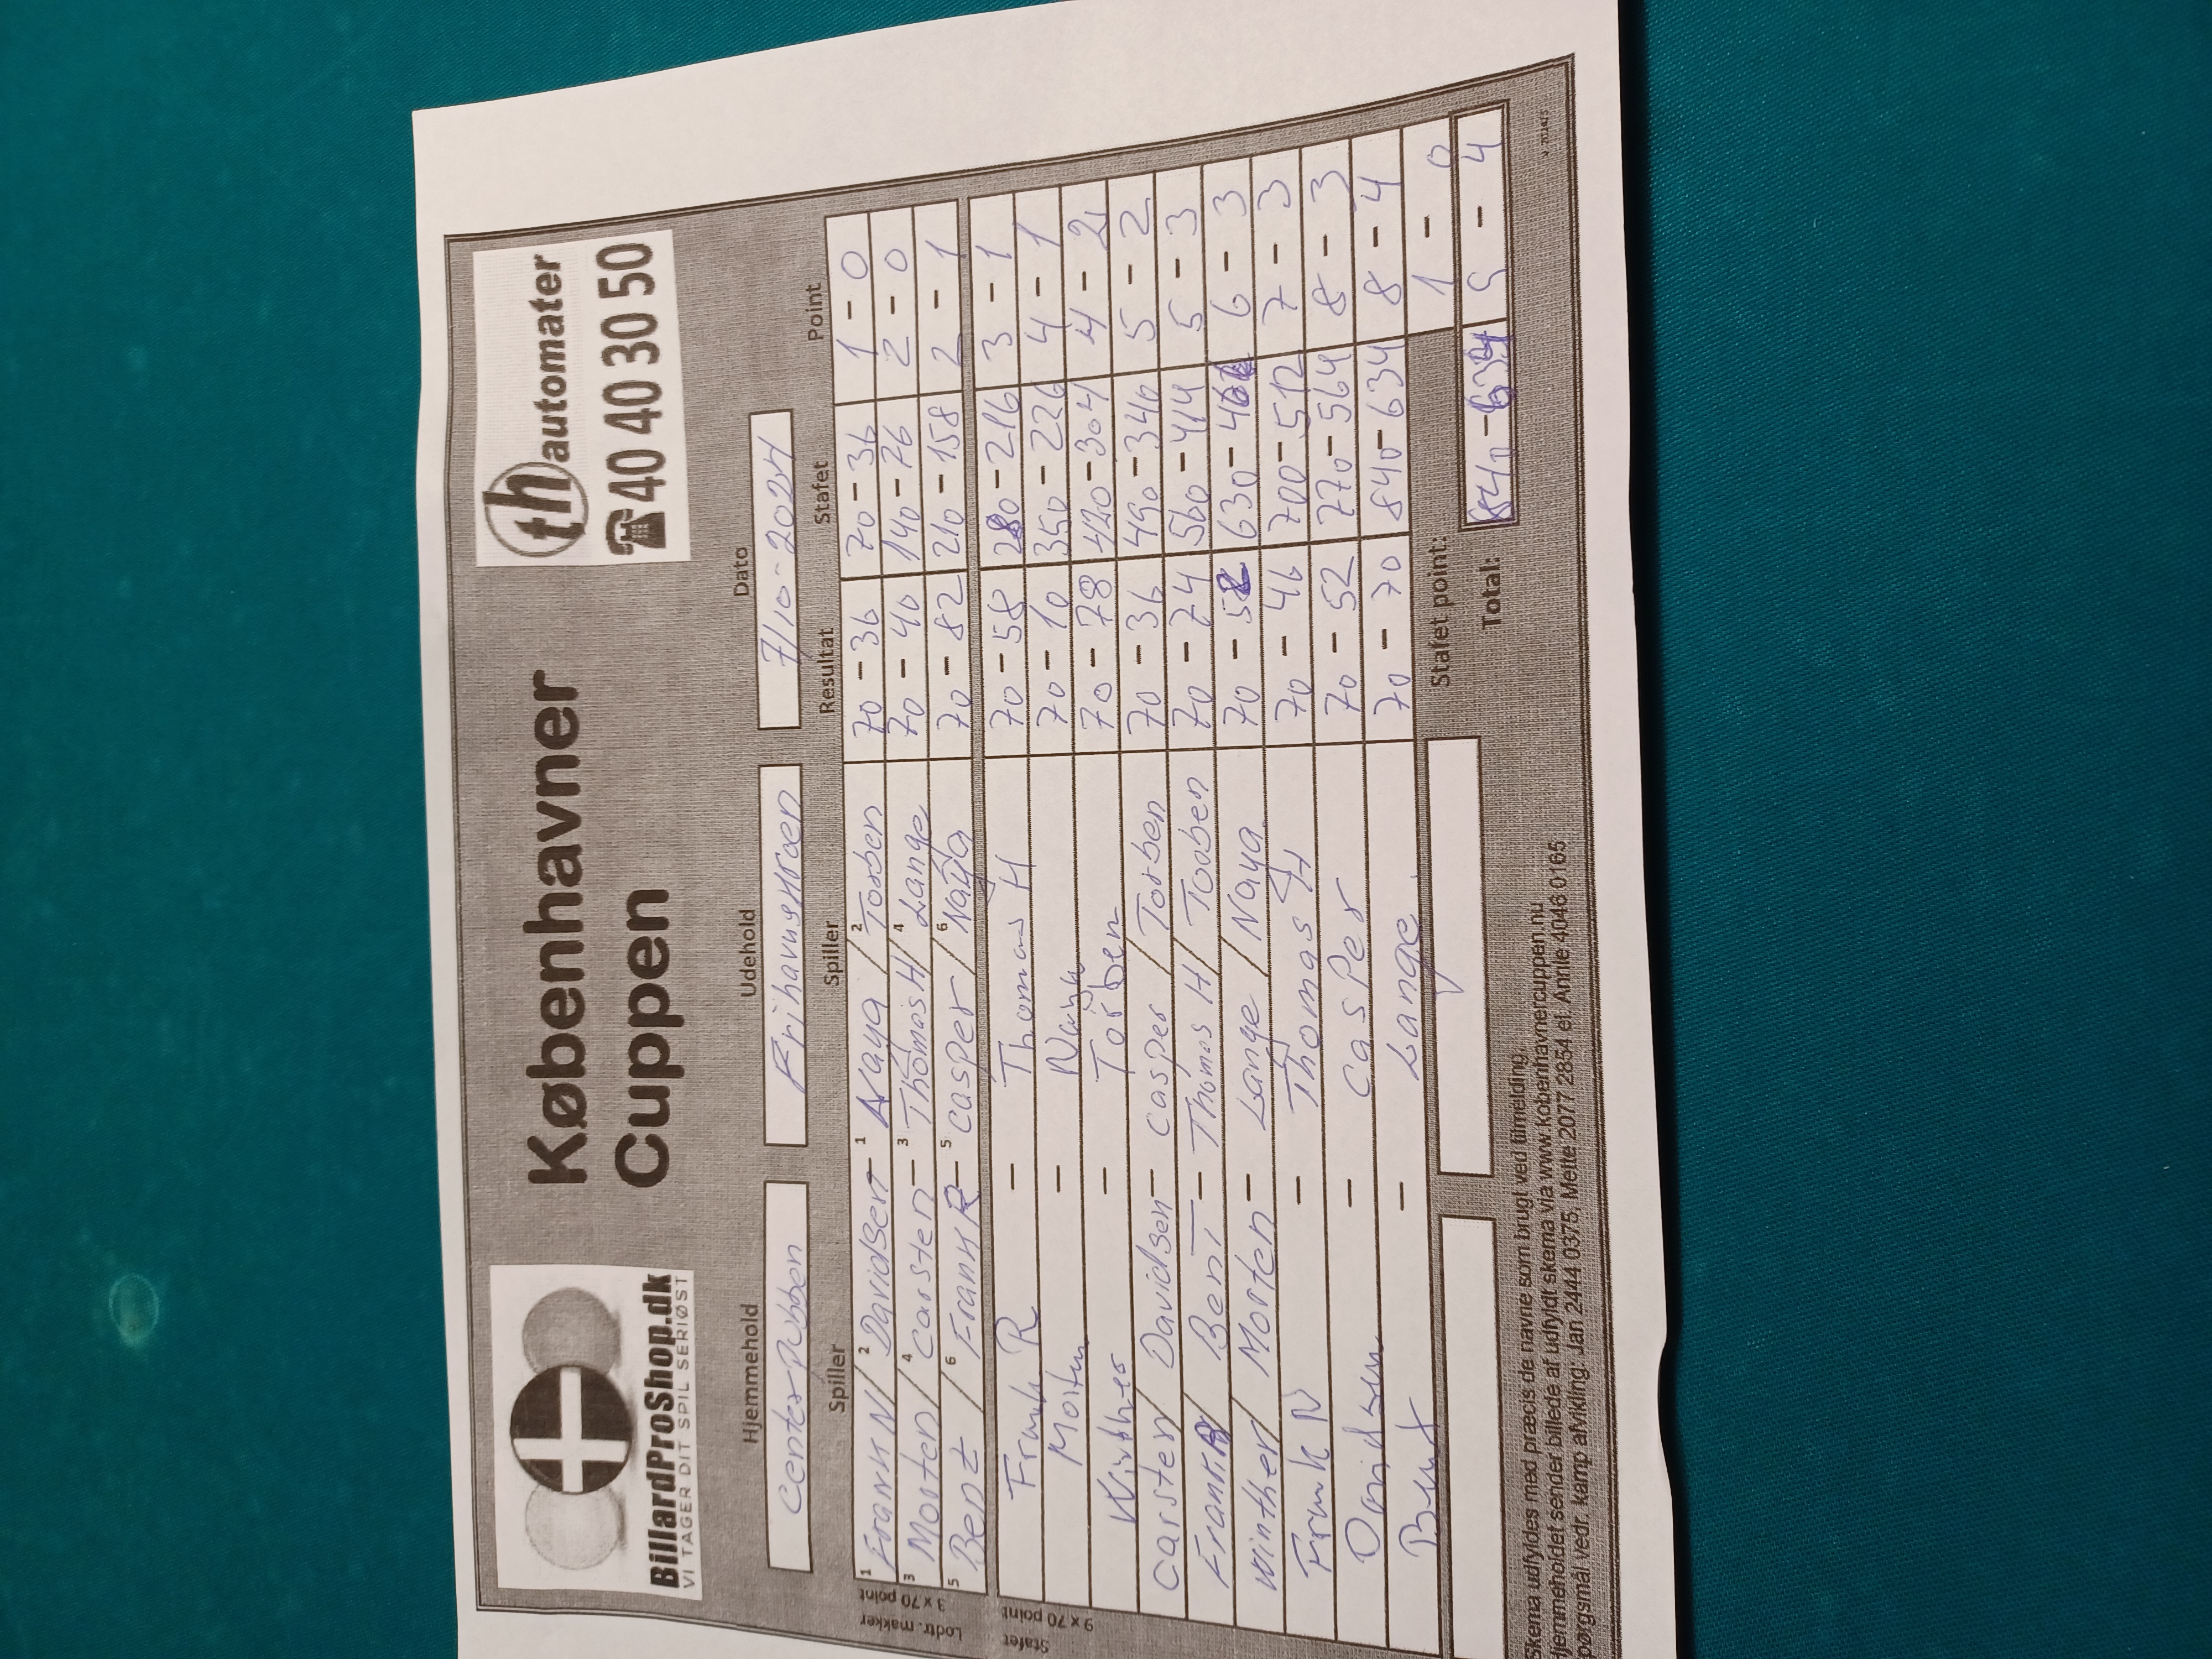 BillardProShop.dk
VI TAGER DIT SPIL SERIØST
Københavner
Cuppen
th automater
☎ 40 40 30 50
Hjemmehold Udehold Dato
Centerpubben Frihavnskroen 7/10-2024
Spiller Spiller Resultat Stafet Point
Lodtr. makker
3 x 70 point
1 Frank N / 2 Davidsen - 1 Naya / 2 Torben 70 - 36 70 - 36 1 - 0
3 Morten / 4 Carsten - 3 Thomas H / 4 Lange 70 - 40 140 - 76 2 - 0
5 Bent / 6 Frank R - 5 Casper / 6 Naya 70 - 82 210 - 158 2 - 1
Stafet
9 x 70 point
Frank R - Thomas H 70 - 58 280 - 216 3 - 1
Morten - Naya 70 - 10 350 - 226 4 - 1
Winther - Torben 70 - 78 420 - 304 4 - 2
Carsten / Davidsen - Casper / Torben 70 - 36 490 - 340 5 - 2
Frank R / Bent - Thomas H / Torben 70 - 74 560 - 414 5 - 3
Winther / Morten - Lange / Naya 70 - 52 630 - 466 6 - 3
Frank N - Thomas H 70 - 46 700 - 512 7 - 3
Davidsen - Casper 70 - 52 770 - 564 8 - 3
Bent - Lange 70 - 70 840 - 634 8 - 4
Stafet point: 1 - 0
Total: 840 - 634 9 - 4
Skema udfyldes med præcis de navne som brugt ved tilmelding.
Hjemmeholdet sender billede af udfyldt skema via www.kobenhavnercuppen.nu
Spørgsmål vedr. kamp afvikling: Jan 2444 0375, Mette 2077 2854 el. Annie 4046 0165